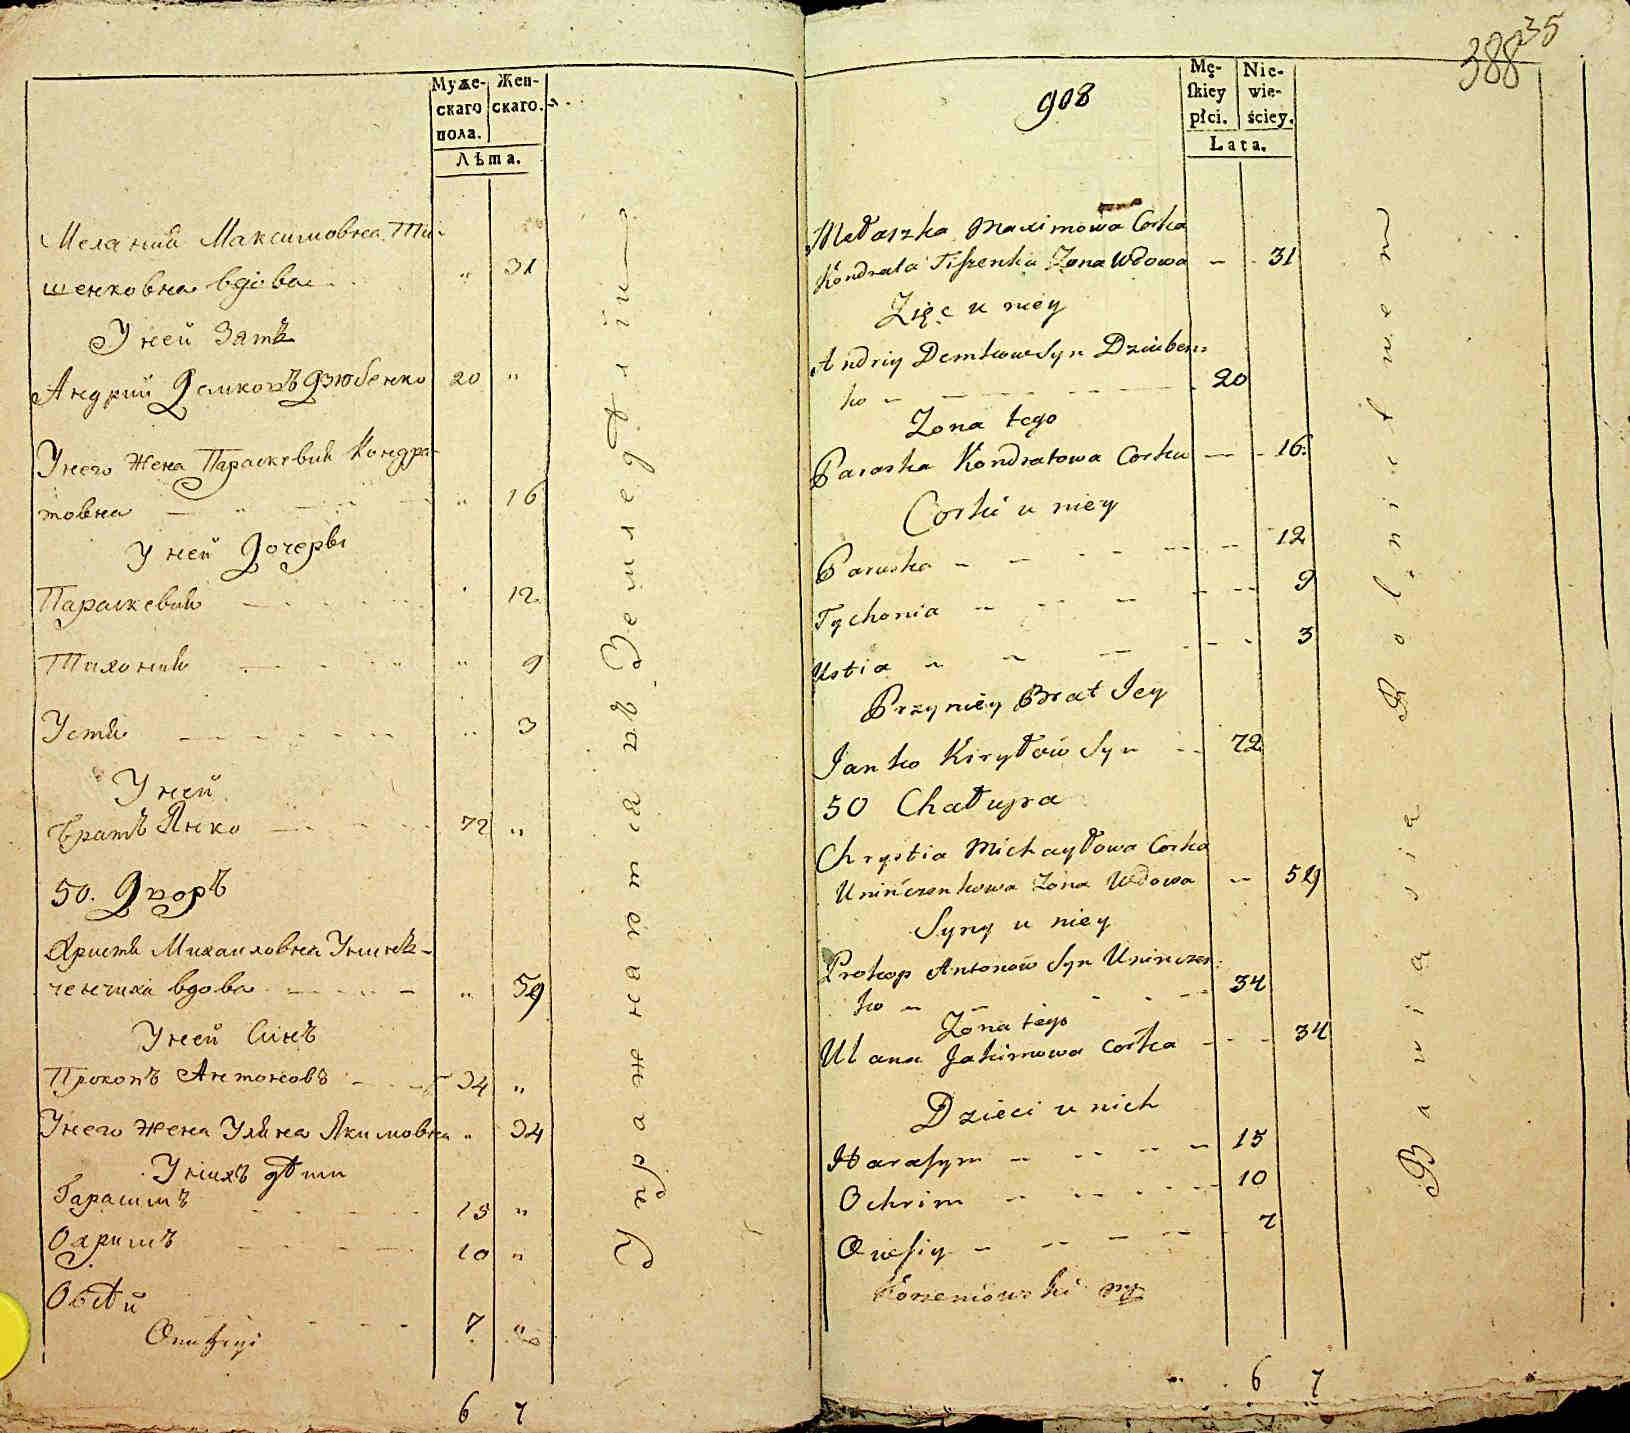 Муже- Жен-
скаго скаго.
пола.
Лѣта.
Меланія Максимовна Ти-
шенковна вдова " 31
У ней Зять
Андрий Демковъ Дзюбенко 20 "
У него Жена Параскевия Кондра-
товна " 16
У ней Дочеры
Параскевия " 12
Тихония " 9
Устя " 3
У ней
братъ Янко 72 "
50. Дворъ
Христя Михаиловна Унинь-
ченчиха вдова " 59
У ней Синъ
Прокопъ Антоновъ 34 "
У него Жена Уляна Якимовна " 34
У нихъ дѣти
Гарасимъ 15 "
Охримъ 10 "
Овсѣй 7 "
6 7
Упражнаются въ Земледѣліи
388 35
908
Mę- Nie-
skiey wie-
płci. ściey.
Lata.
Mełaszka Maximowa Corka
Kondrata Tiszenka Zona Wdowa 31
Zięć u niey
Andriy Demkow Syn Dziuben-
ko 20
Zona tego
Paraska Kondratowa Corka 16
Corki u niey
Paraska 12
Tychonia 9
Ustia 3
Przy niey Brat Jey
Janko Kiryłów Syn 72
50 Chałupa
Chrystia Michayłowa Corka
Uninczenkowa Zona Wdowa 59
Syny u niey
Prokop Antonow Syn Uninczen-
ko 34
Zona tego
Ulana Jakimowa Corka 34
Dzieci u nich
Harasym 15
Ochrim 10
Owsiy 7
Korzeniowski
6 7
Bawią się Rolnictwem